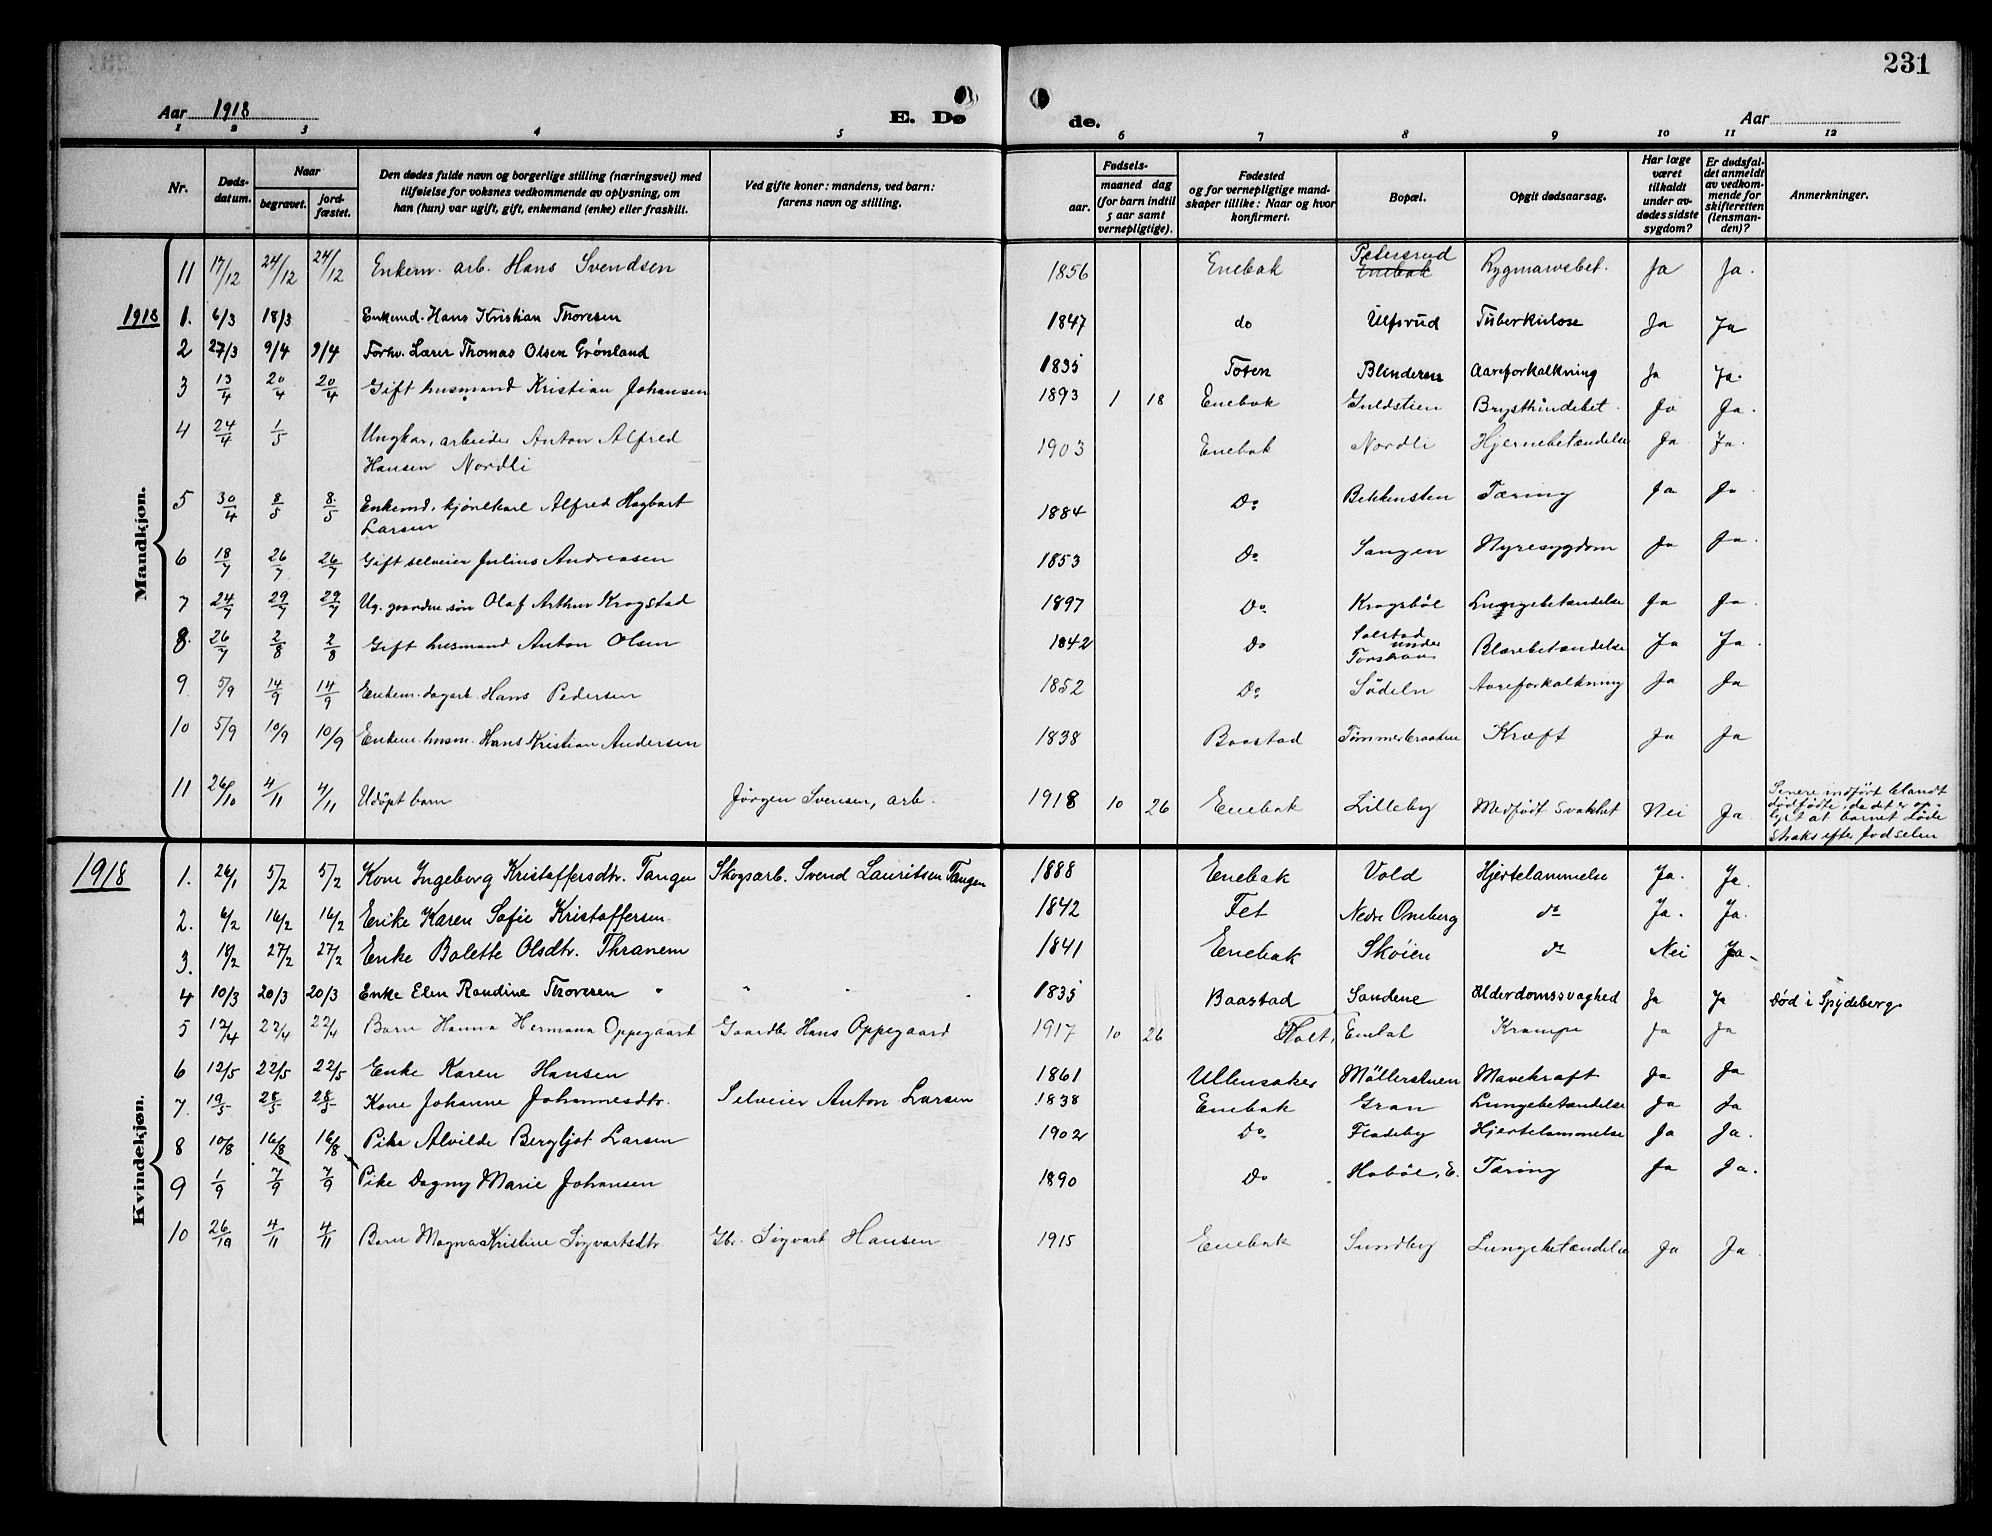 231
Aar 1918
E. Dø de.
Aar
1 2 3 4 5 6 7 8 9 10 11 12
Nr.
Døds-
datum.
Naar
begravet.
jord-
fæstet.
Den dødes fulde navn og borgerlige stilling (næringsvei) med
tilføielse for voksnes vedkommende av oplysning, om
han (hun) var ugift, gift, enkemand (enke) eller fraskilt.
Ved gifte koner: mandens, ved barn:
farens navn og stilling.
Fødsels-
aar.
maaned dag
(for barn indtil
5 aar samt
vernepligtige).
Fødested
og for vernepligtige mand-
skaper tillike: Naar og hvor
konfirmert.
Bopæl.
Opgit dødsaarsag.
Har læge
været
tilkaldt
under av-
dødes sidste
sygdom?
Er dødsfal-
det anmeldt
av vedkom-
mende for
skifteretten
(lensman-
den)?
Anmerkninger.
Mandkjøn.
11 17/12 24/12 24/12 Enkem. arb. Hans Svendsen 1856 Enebak Petersrud Enebak Rygmarvsbet. Ja Ja.
1918 1. 6/3 18/3 Enkemd. Hans Kristian Thoresen 1847 do Ulfsrud Tuberkulose Ja Ja
2 27/3 9/4 9/4 Forhv. Lærer Thomas Olsen Grønland 1835 Toten Blinderen Aareforkalkning Ja Ja.
3 13/4 20/4 20/4 Gift husmand Kristian Johansen 1893 1 18 Enebak Guldstien Brysthindebet. Ja Ja.
4 24/4 1/5 Ungkar, arbeider Anton Alfred
Hansen Nordli 1903 Enebak Nordli Hjernebetændelse Ja Ja.
5 30/4 8/5 8/5 Enkemd. kjørekarl Alfred Hagbart
Larsen 1884 Do Bekkensten Tæring Ja Ja
6 18/7 26/7 26/7 Gift selveier Julius Andreasen 1853 Do Sangen Nyresygdom Ja Ja.
7 24/7 29/7 29/7 Ug. gaardm. søn Olaf Arthur Krogstad 1897 Do Krogsbøl Lungebetændelse Ja Ja.
8. 26/7 2/8 2/8 Gift husmand Anton Olsen 1842 Do Solstad
under Blærebetændelse Ja Ja.
9 5/9 14/9 14/9 Enkem. dagarb. Hans Pedersen 1852 Do Sødeln Aareforkalkning Ja Ja
10 5/9 10/9 10/9 Enkem. husm. Hans Kristian Andersen 1838 Baastad Tømmerbraaten Kræft Ja Ja
11 26/10 4/11 4/11 Udøpt barn Jørgen Svensen, arb. 1918 10 26 Enebak Lilleby Medfødt svakhet Nei Ja Senere indført blandt
dødfødte, da det er op-
lyst at barnet døde
straks efter fødselen
Kvindekjøn.
1918 1. 26/1 5/2 5/2 Kone Ingeborg Kristoffersdtr. Tangen Skogsarb. Svend Lauritsen Tangen 1888 Enebak Vold Hjertelammelse Ja. Ja.
2. 6/2 16/2 16/2 Enke Karen Sofie Kristoffersen 1842 Fet Nedre Oneberg do Ja. Ja.
3. 18/2 27/2 27/2 Enke Bolette Olsdtr. Thranem 1841 Enebak Skøien do Nei Ja
4 10/3 20/3 20/3 Enke Elen Randine Thoresen " " 1835 Baastad Sandene Alderdomssvaghed Ja Ja Død i Spydeberg
5 12/4 22/4 22/4 Barn Hanna Hermana Oppegaard Gaardbr. Hans Oppegaard 1917 10 26 Holt, Enebak Krampe Ja Ja
6 12/5 22/5 22/5 Enke Karen Hansen 1861 Ullensaker Møllerstuen Mavekræft Ja Ja
7. 19/5 28/5 28/5 Kone Johanne Johannesdtr. Selveier Anton Larsen 1838 Enebak Gran Lungebetændelse Ja Ja
8 10/8 16/8 16/8 Pike Alvilde Bergljot Larsen 1902 Do Fladeby Hjertelammelse Ja Ja.
9 1/9 7/9 7/9 Pike Dagny Marie Johansen 1890 Do Habøl, E. Tæring Ja Ja.
10 26/10 4/11 4/11 Barn Magna Kristine Sigvartsdtr. Gbr. Sigvart Hansen 1915 Enebak Sundby Lungebetændelse Ja Ja